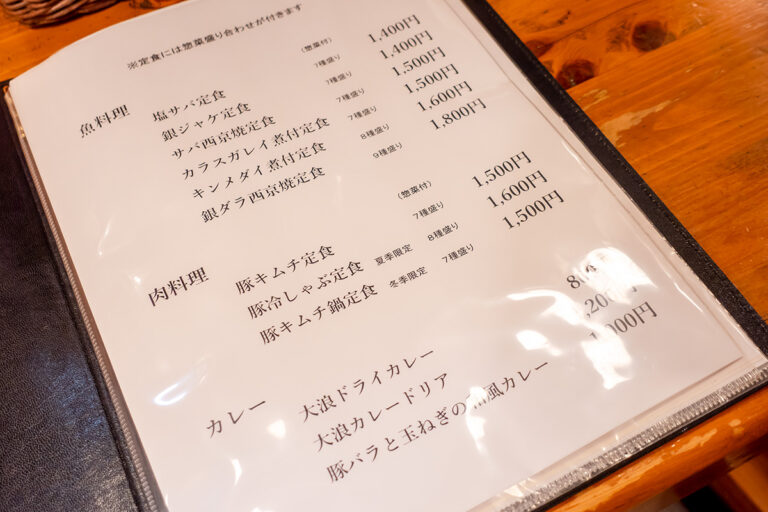 ※定食には惣菜盛り合わせが付きます
魚料理 (惣菜付)
塩サバ定食 7種盛り 1,400円
銀ジャケ定食 7種盛り 1,400円
サバ西京焼定食 7種盛り 1,500円
カラスガレイ煮付定食 7種盛り 1,500円
キンメダイ煮付定食 8種盛り 1,600円
銀ダラ西京焼定食 9種盛り 1,800円
肉料理 (惣菜付)
豚キムチ定食 7種盛り 1,500円
豚冷しゃぶ定食 夏季限定 8種盛り 1,600円
豚キムチ鍋定食 冬季限定 7種盛り 1,500円
カレー
大浪ドライカレー
大浪カレードリア
豚バラと玉ねぎの 風カレー